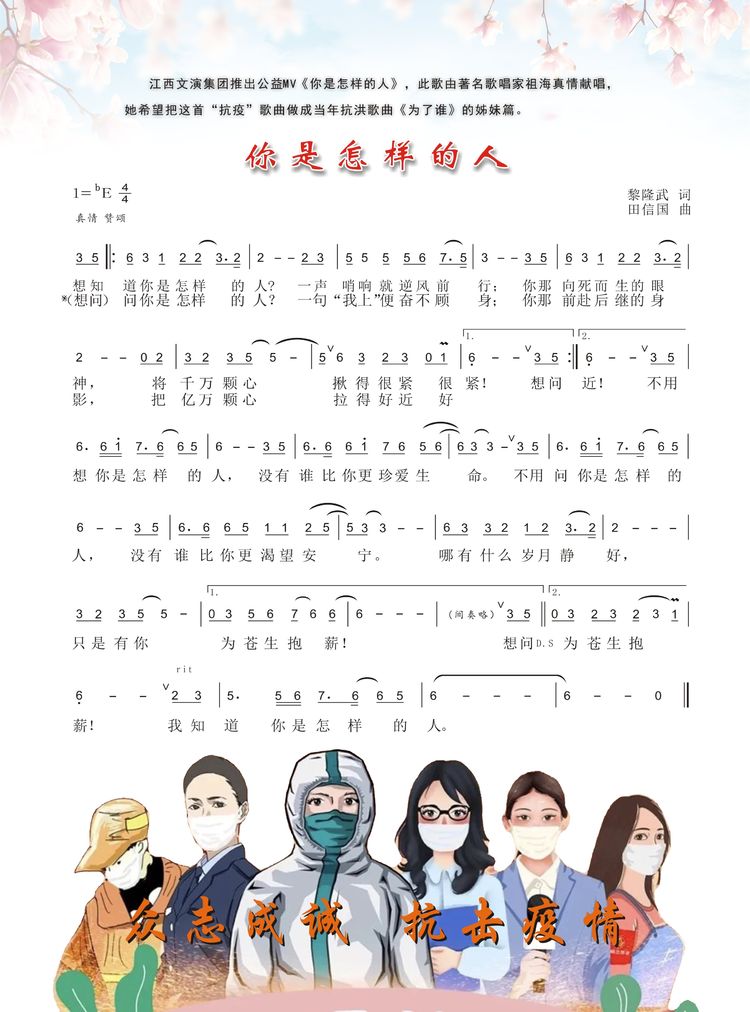 江西文演集团推出公益MV《你是怎样的人》，此歌由著名歌唱家祖海真情献唱，
她希望把这首“抗疫”歌曲做成当年抗洪歌曲《为了谁》的姊妹篇。
你是怎样的人
1=ᵇE 4/4
黎隆武 词
真情 赞颂
田信国 曲
3 5 ‖: 6 3 1 2 2 3. 2 | 2 - - 2 3 | 5 5 5 5 6 7. 5 | 3 - - 3 5 | 6 3 1 2 2 3. 2 |
想知 道你是怎样 的人? 一声 哨响就逆风前 行; 你那 向死而生的眼
*(想问) 问你是怎样 的人? 一句“我上”便奋不顾 身; 你那 前赴后继的身
2 - - 0 2 | 3 2 3 5 5 - | 5 6 3 2 3 0 1 | 1. 6 - - 3 5 :‖ 2. 6 - - 3 5 |
神， 将 千万 颗心 揪得很紧 很紧! 想问 近! 不用
影， 把 亿万 颗心 拉得好近 好
6. 6 1 7. 6 6 5 | 6 - - 3 5 | 6. 6 6 5 7 6 5 6 | 6 3 3 - 3 5 | 6. 6 1 7. 6 6 5 |
想你是怎样 的人，没有谁比你更珍爱生 命。不用问你是怎样的
6 - - 3 5 | 6. 6 6 5 1 1 2 5 | 5 3 3 - | 2 3 3 2 1 2 3. 2 | 2 - - - |
人， 没有 谁比你更渴望安 宁。 哪有什么岁月静 好，
3 2 3 5 5 - | 1. 0 3 5 6 7 6 6 | 6 - - - | (间奏略) 3 5 ‖ 2. 0 3 2 3 2 3 1 |
只是有你 为苍生抱 薪! 想问D.S 为苍生抱
rit
6 - - 2 3 | 5. 5 6 7. 6 6 5 | 6 - - - | 6 - - 0 ‖
薪! 我知道 你是怎样 的人。
众志成诚 抗击疫情